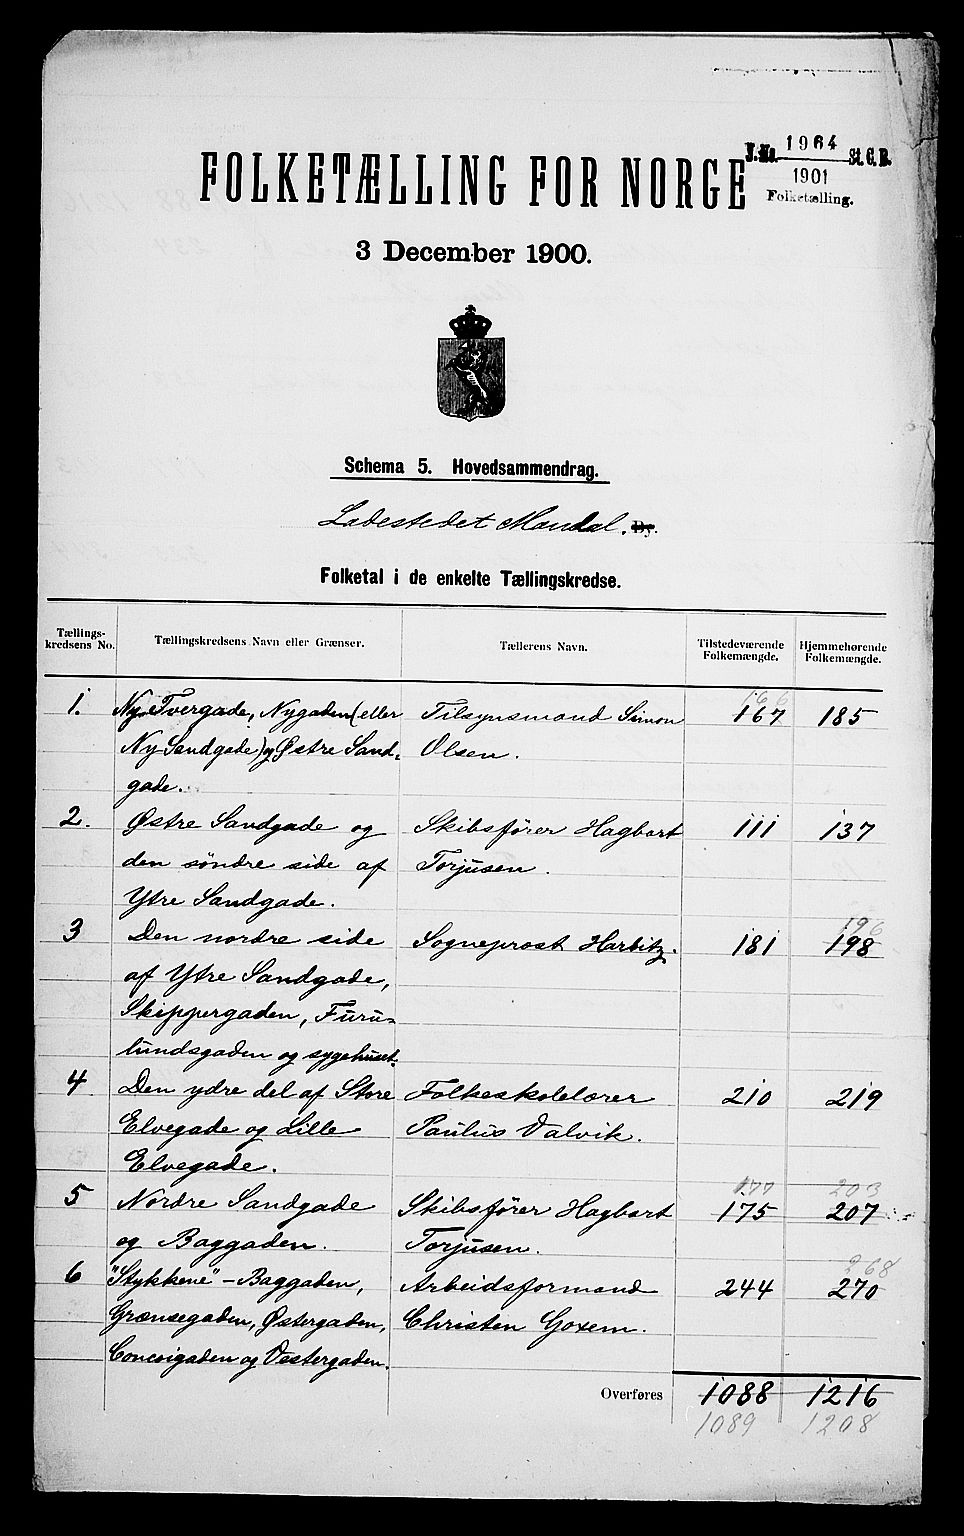 FOLKETÆLLING FOR NORGE
J.No. 1964 St. C. B.
1901
Folketælling.
3 December 1900.
Schema 5. Hovedsammendrag.
Ladestedet Mandal. By.
Folketal i de enkelte Tællingskredse.
Tællings-kredsens No. Tællingskredsens Navn eller Grænser. Tællerens Navn. Tilstedeværende Folkemængde. Hjemmehørende Folkemængde.
166
1. Ny Tvergade, Nygaden (eller Tilsynsmand Simon 167 185
Ny-Sandgade) og Østre Sand- Olsen.
gade.
2. Østre Sandgade og Skibsfører Hagbart 111 137
den søndre side af Torjusen.
Ytre Sandgade.
196
3 Den nordre side Sogneprost Harbitz. 181 198
af Ytre Sandgade,
Skippergaden, Furu-
lundsgaden og sygehuset.
4 Den ydre del af Store Folkeskolelærer 210 219
Elvegade og Lille Paulus Valvik.
Elvegade.
177 203
5 Nordre Sandgade Skibsfører Hagbart 175 207
og Baggaden. Torjusen.
268
6 "Stykkene" - Baggaden, Arbeidsformand 244 270
Grænsegaden, Østergaden, Christen Goxem.
og Vestergaden.
Overføres 1088 1216
1089 1208